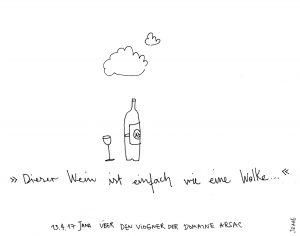 »Dieser Wein ist einfach wie eine Wolke...«
13.4.17 Jana ÜBER DEN VIOGNER DER DOMAINE ARSAC